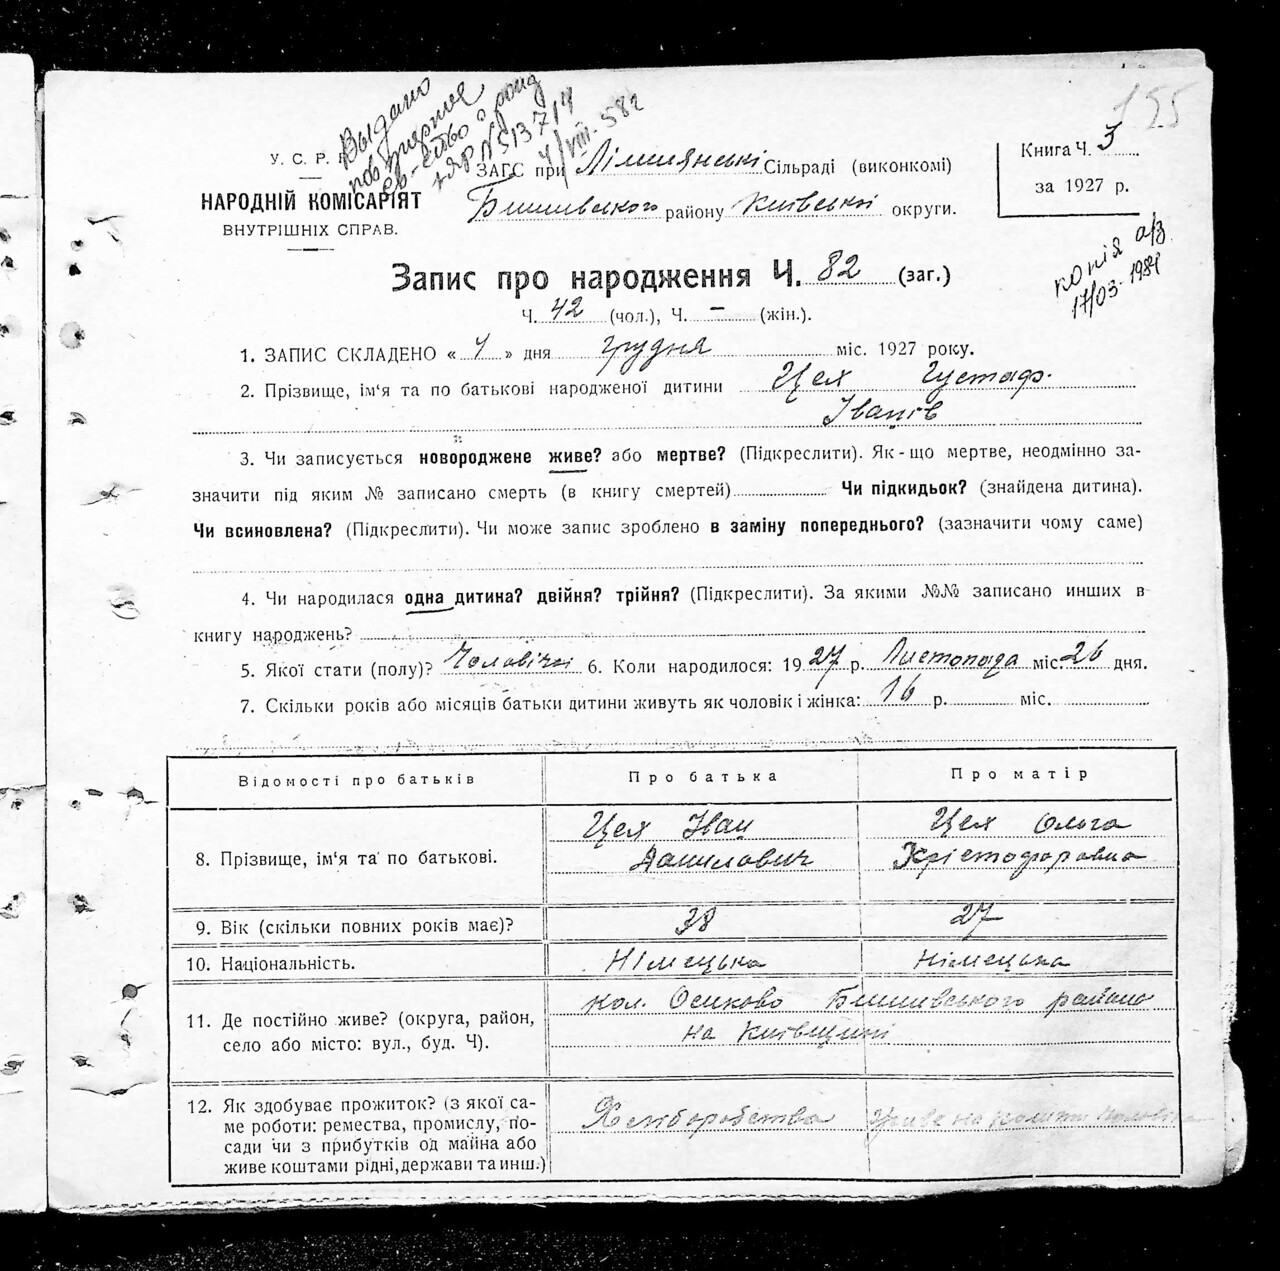 155
Выдано
повторное
св-ство о рожд
ЯР № 513714
4/VIII-58г
У. С. Р. Р.
НАРОДНІЙ КОМІСАРІЯТ
ВНУТРІШНІХ СПРАВ.
ЗАГС при Сільраді (виконкомі)
району Київської округи.
Книга Ч. 3
за 1927 р.
копія а/з
17/03. 1984
Запис про народження Ч. 82 (заг.)
Ч. 42 (чол.), Ч. – (жін.).
1. ЗАПИС СКЛАДЕНО « 4 » дня грудня міс. 1927 року.
2. Прізвище, ім'я та по батькові народженої дитини Цех Густаф
Іванів
3. Чи записується новороджене живе? або мертве? (Підкреслити). Як-що мертве, неодмінно за-
значити під яким № записано смерть (в книгу смертей) Чи підкидьок? (знайдена дитина).
Чи всиновлена? (Підкреслити). Чи може запис зроблено в заміну попереднього? (зазначити чому саме)
4. Чи народилася одна дитина? двійня? трійня? (Підкреслити). За якими №№ записано инших в
книгу народжень?
5. Якої стати (полу)? Чоловічої 6. Коли народилося: 1927 р. Листопада міс. 26 дня.
7. Скільки років або місяців батьки дитини живуть як чоловік і жінка: 16 р. міс.
Відомості про батьків Про батька Про матір
8. Прізвище, ім'я та по батькові. Цех Іван Данилович Цех Ольга Крістофоровна
9. Вік (скільки повних років має)? 38 27
10. Національність. Німецька Німецька
11. Де постійно живе? (округа, район,
село або місто: вул., буд. Ч).
кол. Осиково Бишивського району
на Київщині
12. Як здобуває прожиток? (з якої са-
ме роботи: ремества, промислу, по-
сади чи з прибутків од майна або
живе коштами рідні, держави та инш.)
Хліборобства